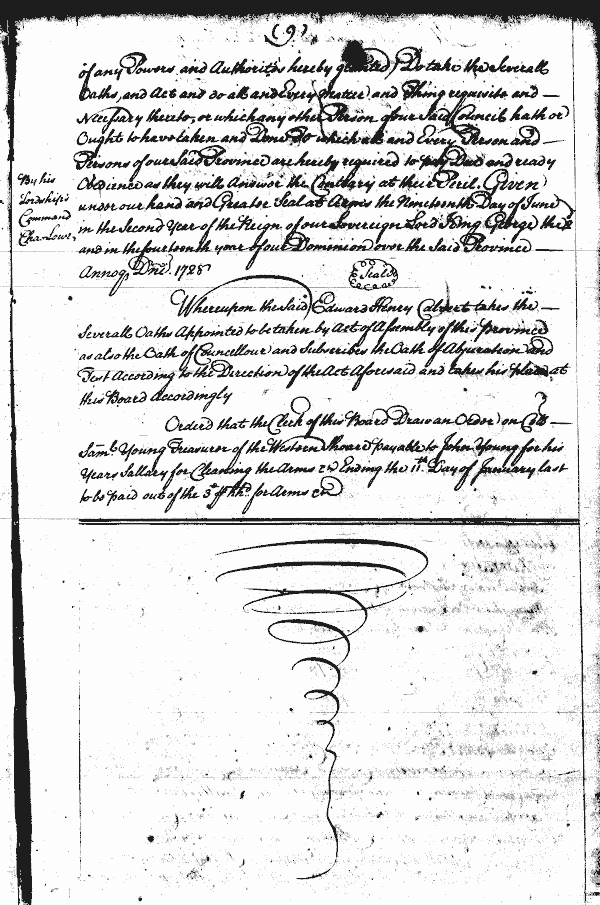 (9)
of any Powers and Authoritys hereby granted) To take the Severall
Oaths, and Act and do all and Every matter and thing requisite and —
Necessary thereto, or which any other Person of our Said Council hath or
Ought to have taken and Done To which all and Every Person and —
Persons of our Said Province are hereby required to pay Due and ready
Obedience as they will Answer the Contrary at their Peril. Given
under our hand and Greater Seal at Arms the Nineteenth Day of June
in the Second Year of the Reign of our Sovereign Lord King George the 2
and in the fourteenth year of our Dominion over the Said Province —
Annoq Dni. 1728
By his
Lordship's
Command
Cha. Lowe,
Seale
Whereupon the Said Edward Henry Calvert takes the —
Severall Oaths Appointed to be taken by Act of Assembly of this Province
as also the Oath of Councellour and Subscribes the Oath of Abjuration and
Test According to the Direction of the Act Aforesaid and takes his place at
this Board accordingly
Ordered that the Clerk of this Board Draw an Order on Coll —
Saml. Young Treasurer of the Western Shoar payable to John Young for his
Years Sallary for Cleaning the Arms &c Ending the 11th. Day of January last
to be paid out of the 3d hhd. for Arms &c